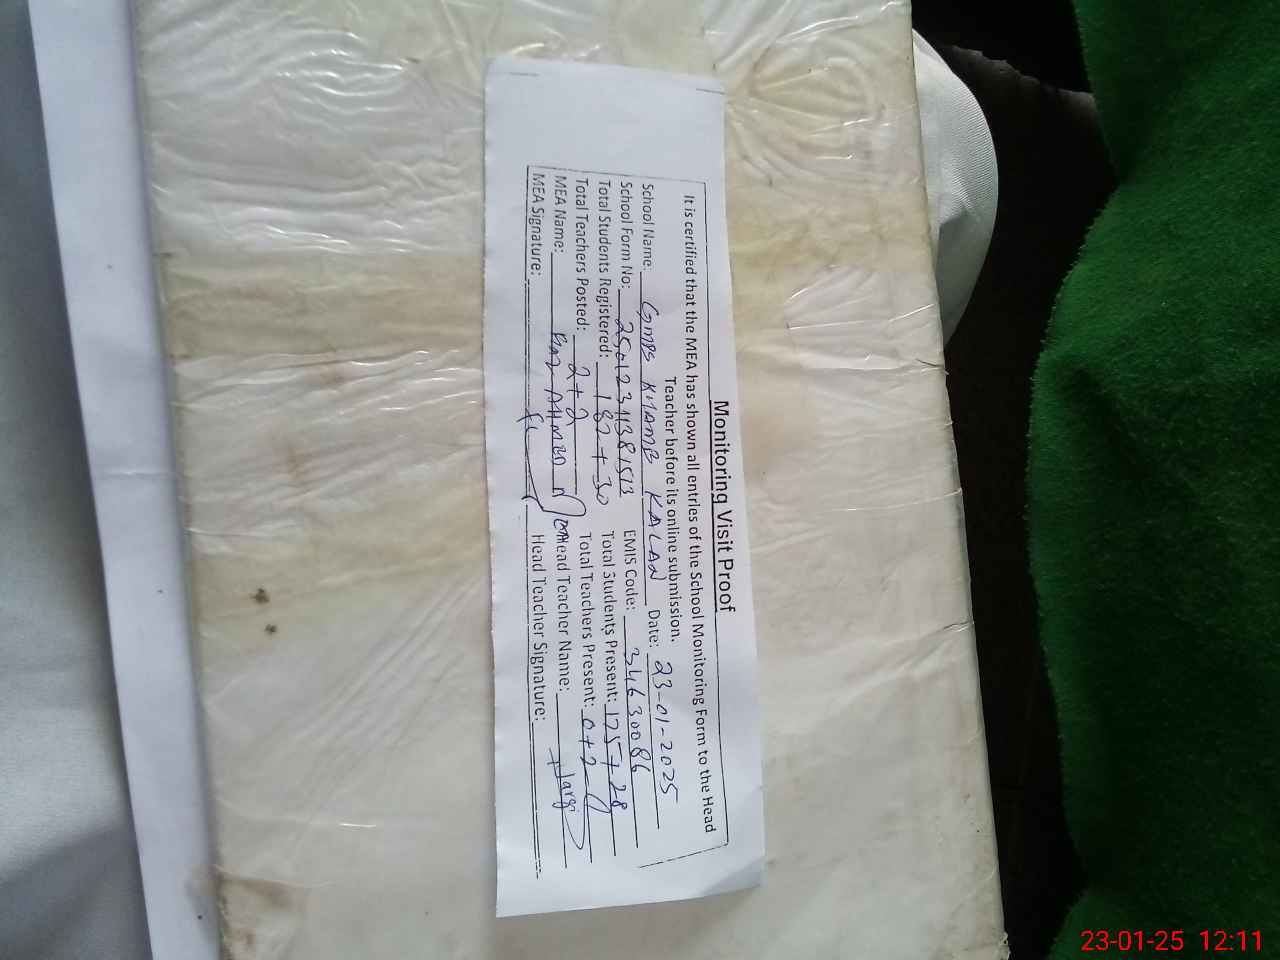 Monitoring Visit Proof
It is certified that the MEA has shown all entries of the School Monitoring Form to the Head
Teacher before its online submission.
School Name: GMPS KHAMB KALAN Date: 23-01-2025
School Form No: EMIS Code: 34630086
Total Students Registered: 182+30 Total Students Present: 175+28
Total Teachers Posted: 2+2 Total Teachers Present: 0+2
MEA Name: AHMED Head Teacher Name:
MEA Signature: Head Teacher Signature:
23-01-25 12:11